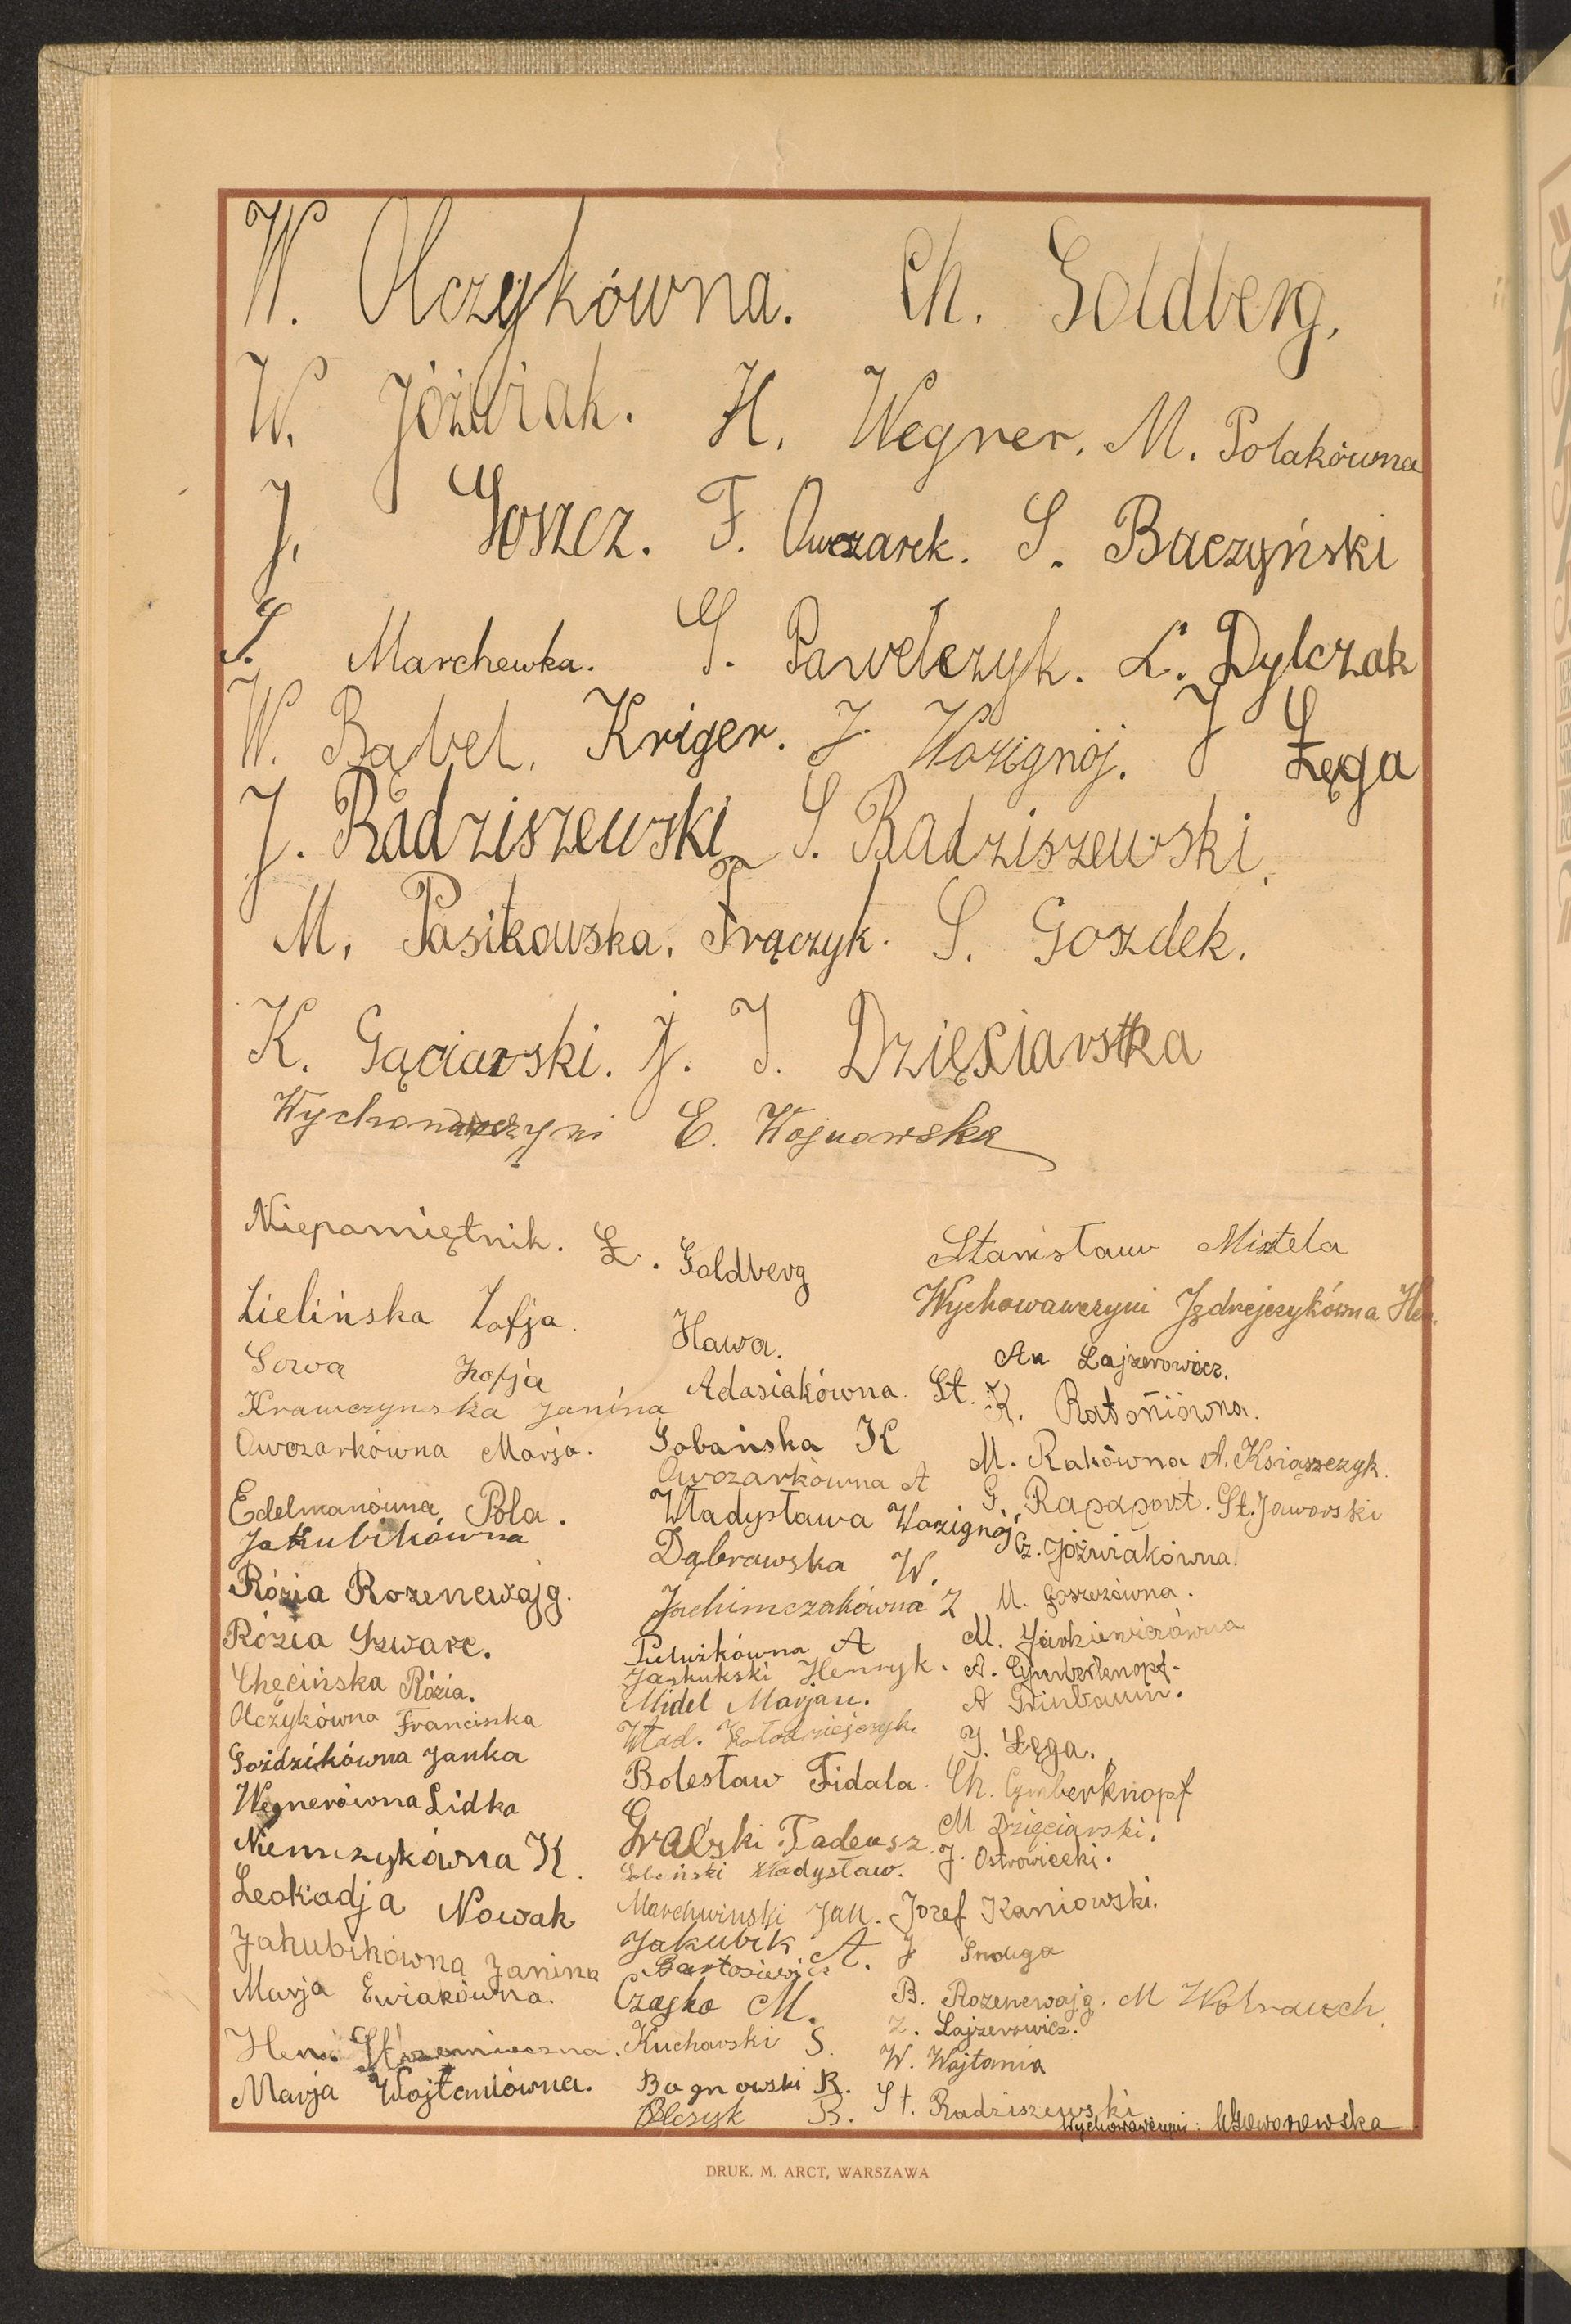 W. Olczykówna. Ch. Goldberg.
W. Jóźwiak. H. Wegner. M. Polakówna
J. Goszcz. F. Owczarek. S. Baczyński
S. Marchewka. S. Pawełczyk. L. Dylczak
W. Bąbel. Kriger. J. Wozignój. J Łęga
J. Radziszewski S. Radziszewski.
M. Pasikowska. Frączyk. S. Gozdek.
K. Gąciarski. J. J. Dzięciarska
Wychowawczyni E. Wojnowska
Niepamiętnik.
Zielińska Zofja.
Sowa Zofja
Krawczynska Janina
Owczarkówna Marja.
Edelmanówna Pola.
Jakubikówna
Rózia Rozenewajg.
Rózia Szwarc.
Chęcińska Rózia.
Olczykówna Franciszka
Goździkówna Janka
Wegnerówna Lidka
Niemczykówna K.
Leokadja Nowak
Jakubikówna Janina
Marja Ewiakówna.
Hen.
Marja Wojtaniówna.
Ł. Goldberg
Hawa.
Adasiakówna St.
Gobańska K
Owczarkówna A
Władysława Wozignój
Dąbrawska W.
Jachimczakówna Z
A
Henryk.
Midel Marjan.
Wład. Kołodziejczyk.
Bolesław Fidala.
Gralski Tadeusz.
Gobański Władysław.
Marchwinski Jan.
Jakubik A.
Bartosiewicz
Czajko M.
Kucharski S.
Bognowski R.
Olczyk B.
Stanisław Misztela
Wychowawczyni Jędrejczykówna Hen.
An Lajzerowicz.
K. Ratoniówna.
M. Rakówna A. Książczyk.
G. Rapaport. St. Jaworski
Cz. Jóźwiakówna.
M. Goszczówna.
M. Jackiewiczówna
A. Cymberknopf.
A Grinbaum.
J. Łęga.
Ch. Cymberknopf
M Dzięciarski.
J. Ostrowiecki.
Jozef Kaniowski.
J Smuga
B. Rozenewajg. M Wolrauch.
Z. Lajzerowicz.
W. Wojtania
St. Radziszewski
Wychowawczyni:
DRUK. M. ARCT, WARSZAWA